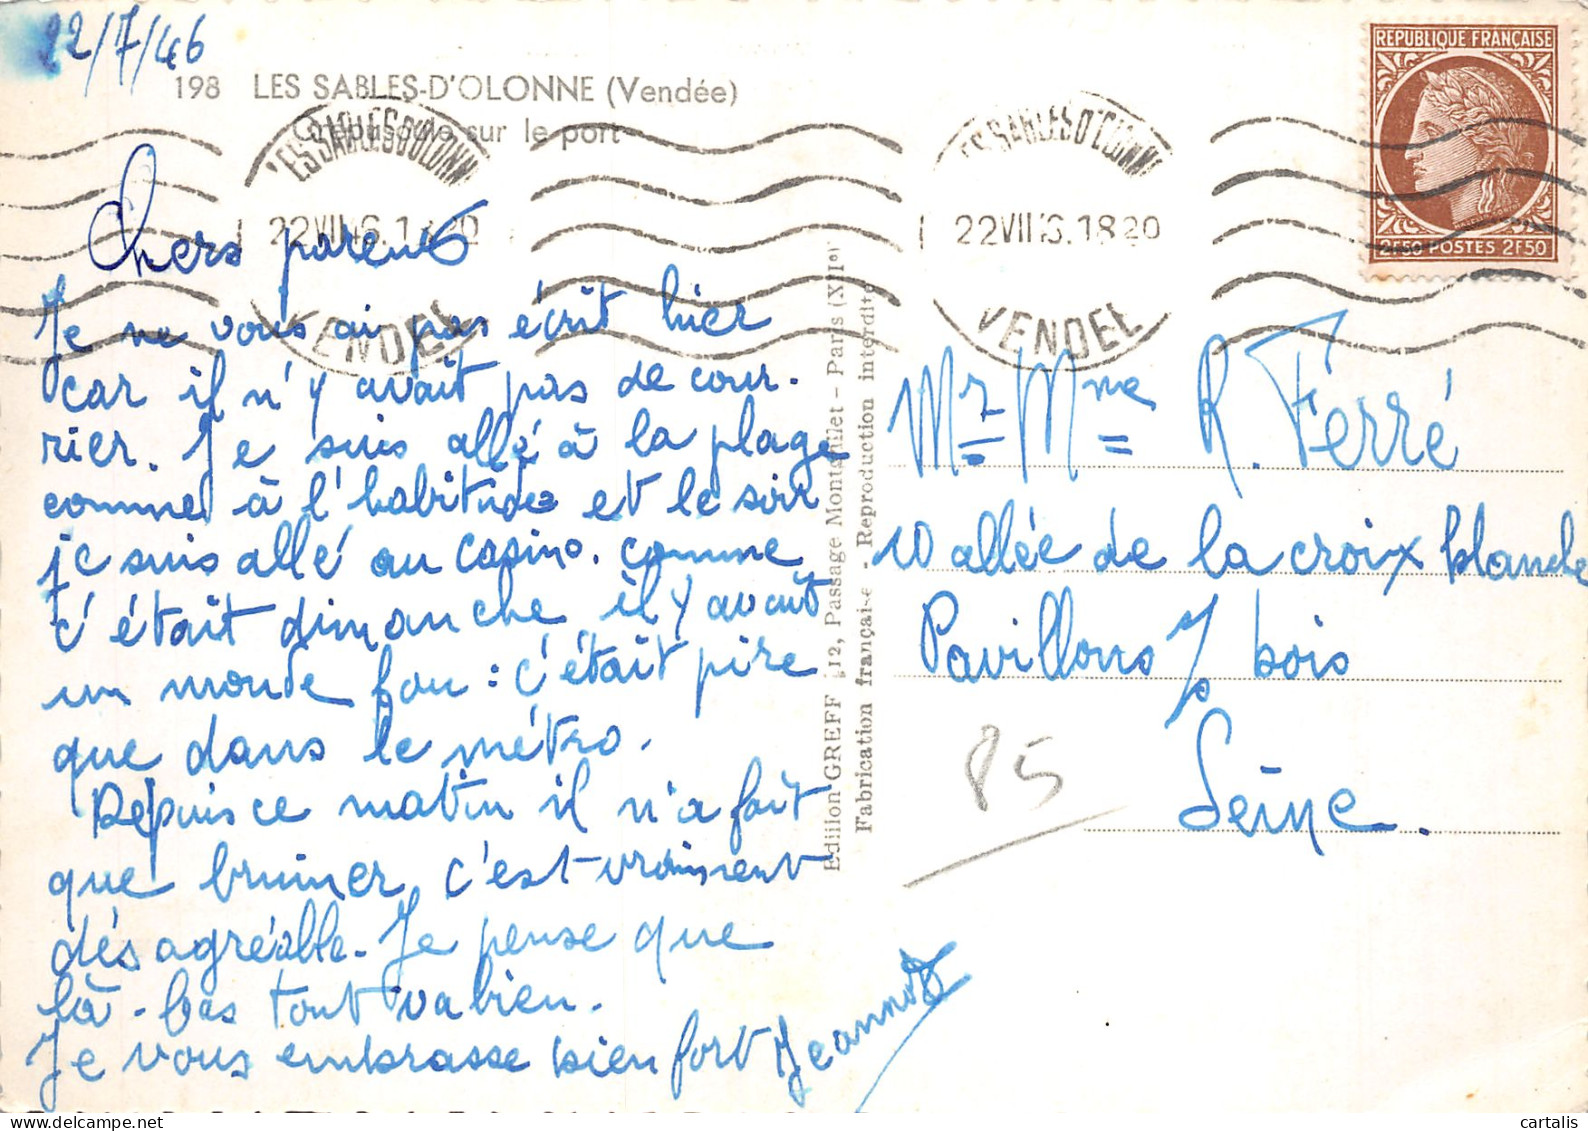 22/7/46
198 LES SABLES-D'OLONNE (Vendée)
Crépuscule sur le port
LES SABLES D'OLONNE
22 VII 46. 18 20
VENDEE
LES SABLES D'OLONNE
22 VII 46. 18 20
VENDEE
REPUBLIQUE FRANÇAISE
2F50 POSTES 2F50
Chers parents
Je ne vous ai pas écrit hier
car il n'y avait pas de cour-
rier. Je suis allé à la plage
comme à l'habitude et le soir
je suis allé au casino. comme
c'était dimanche il y avait
un monde fou : c'était pire
que dans le métro.
Depuis ce matin il n'a fait
que bruiner, c'est vraiment
désagréable. Je pense que
là-bas tout va bien.
Je vous embrasse bien fort Jeannot
Edition GREFF 12, Passage Montgallet - Paris (XIIe)
Fabrication française - Reproduction interdite
Mr Mme R. Ferré
10 allée de la croix blanche
Pavillons s/ bois
Seine.
85
cartalis
www.delcampe.net